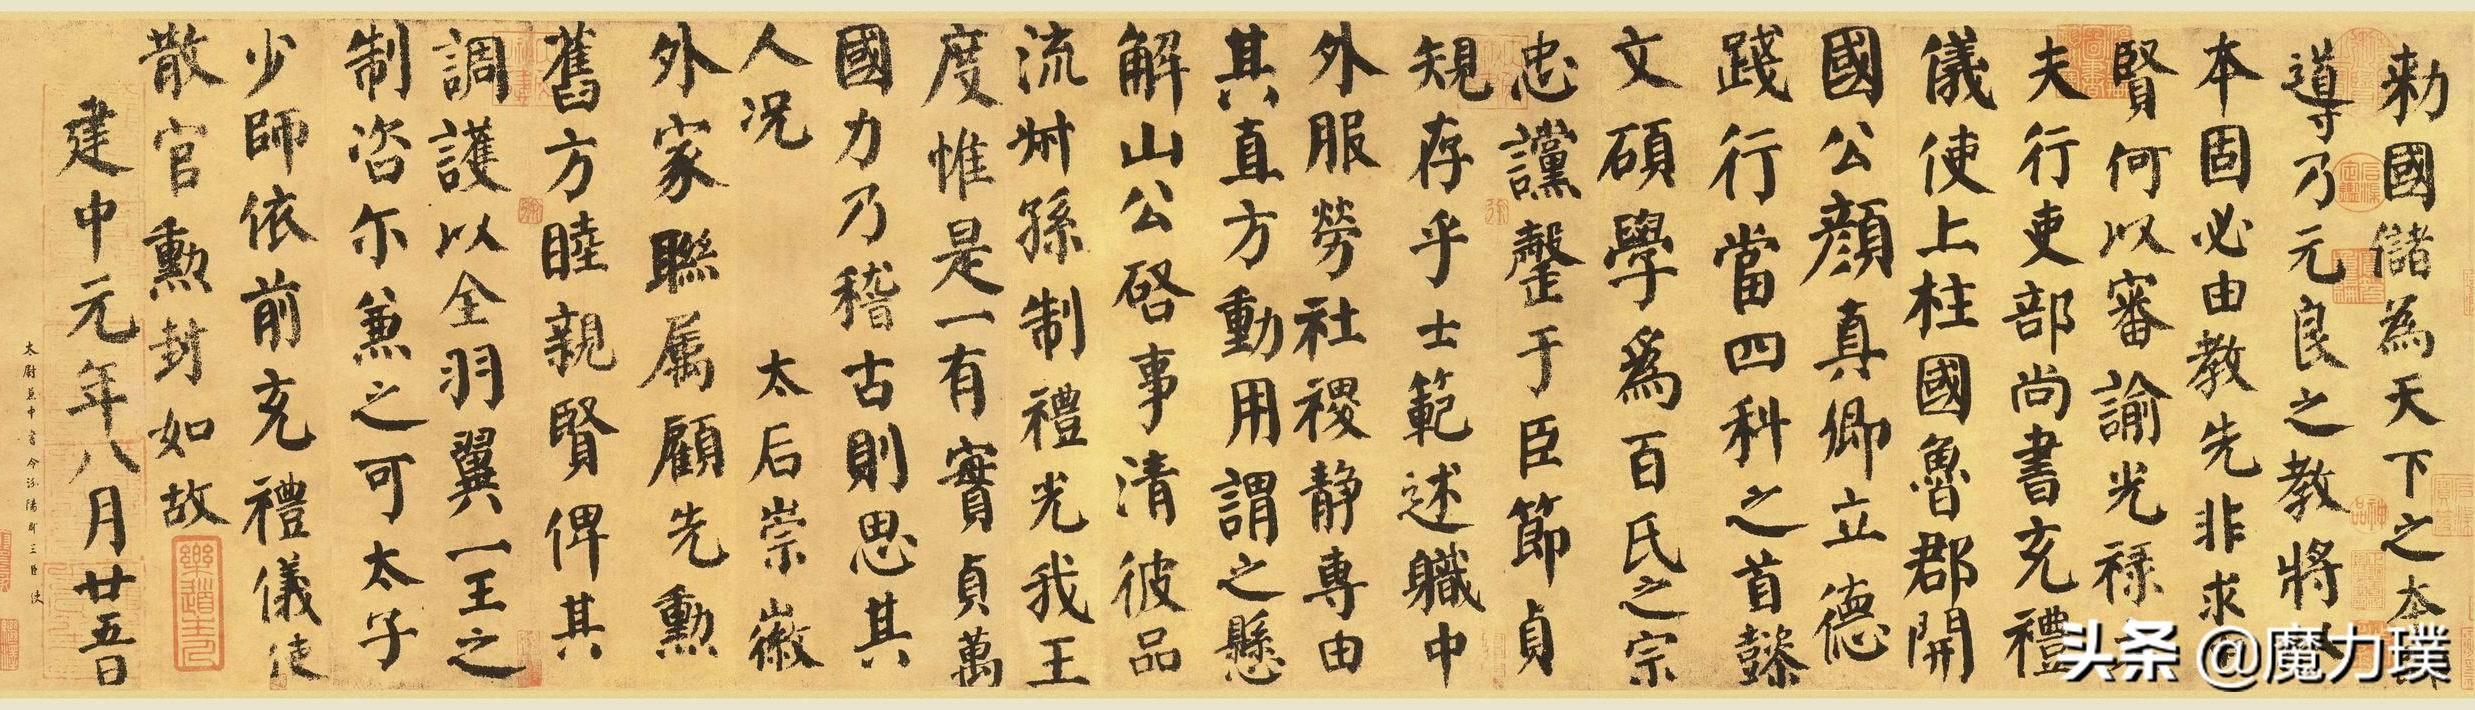 勑國儲為天下之本
導乃元良之教將
本固必由教先非求
賢何以審諭光祿
夫行吏部尚書充禮
儀使上柱國魯郡開
國公顏真卿立德
踐行當四科之首懿
文碩學為百氏之宗
忠讜罄于臣節貞
規存乎士範述職中
外服勞社稷靜專由
其直方動用謂之懸
解山公啓事清彼品
流叔孫制禮光我王
度惟是一有實貞萬
國力乃稽古則思其
人況 太后崇徽
外家聯屬顧先勳
舊方睦親賢俾其
調護以全羽翼一王之
制咨尔兼之可太子
少師依前充禮儀使
散官勳封如故
建中元年八月廿五日
太尉兼中書令汾陽郡王臣使
樂道主人
头条 @魔力璞